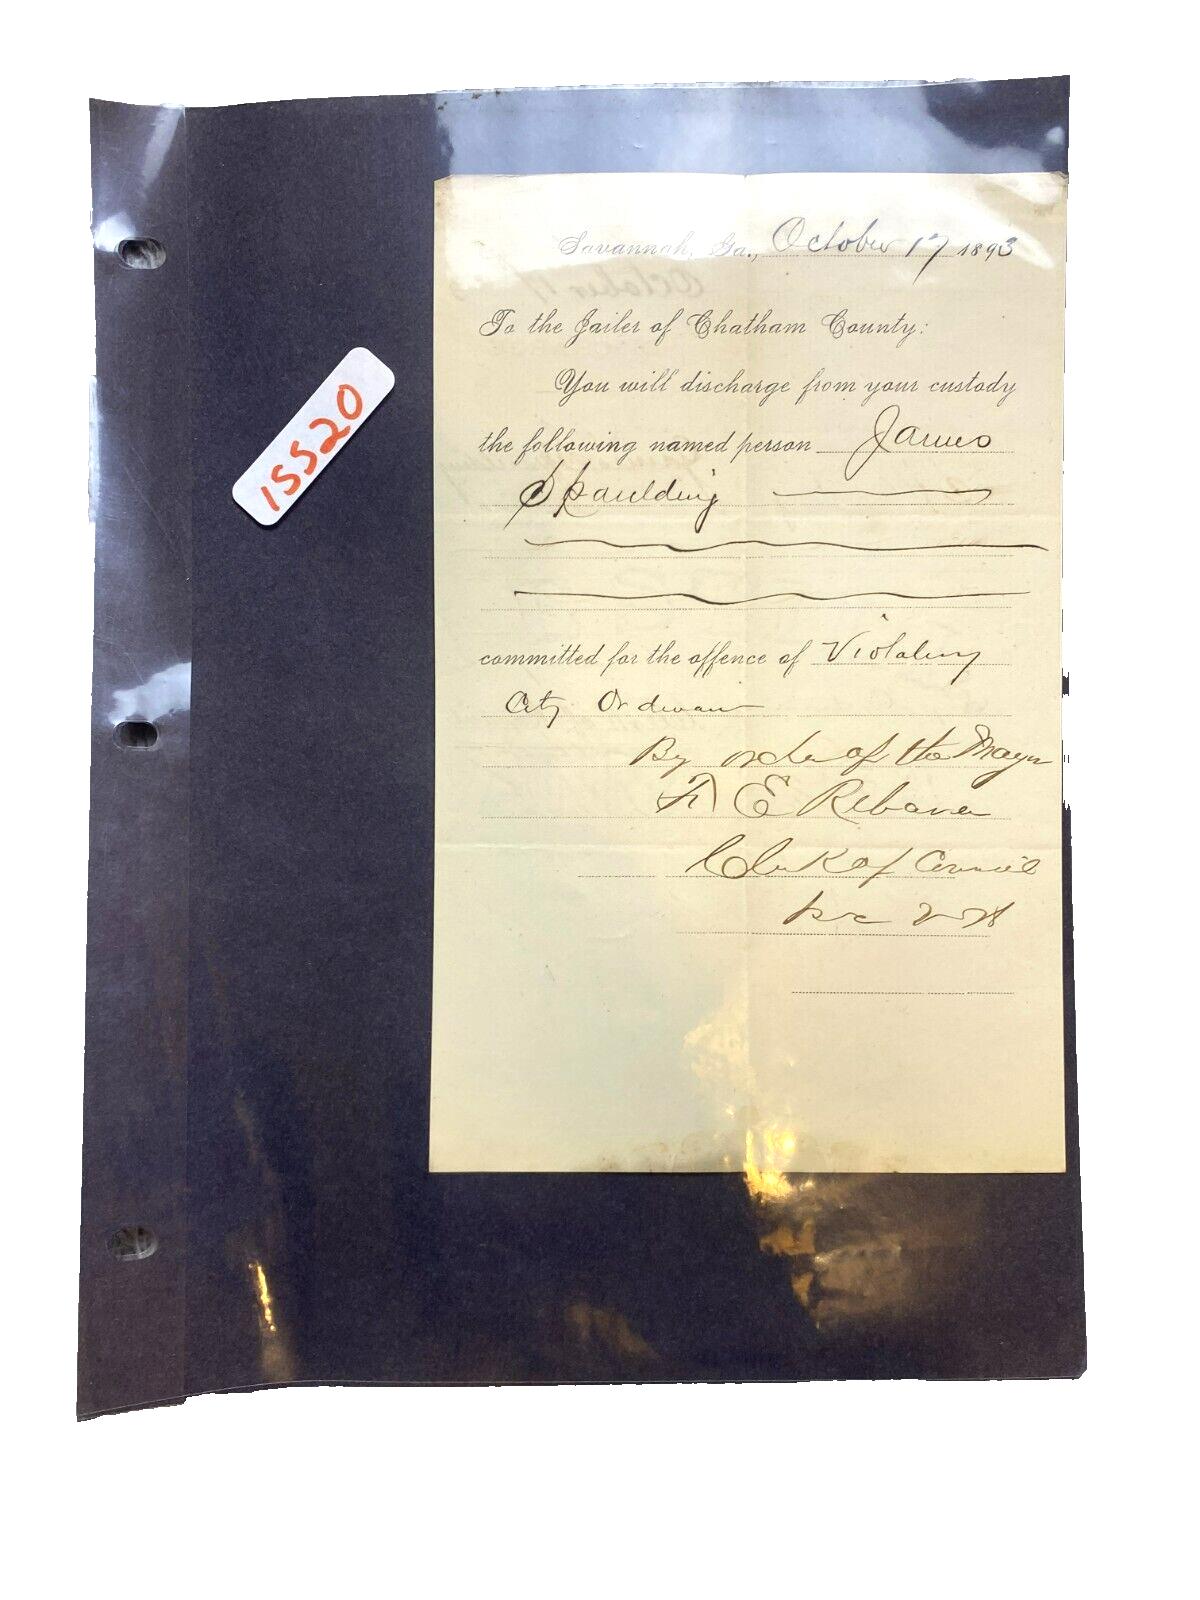 Savannah, Ga., October 17 1893
To the Jailer of Chatham County:
You will discharge from your custody
the following named person James
Spaulding
committed for the offence of Violating
City Ordinance
By order of the Mayor
F E Rebarer
Clerk of Council
Per
15520